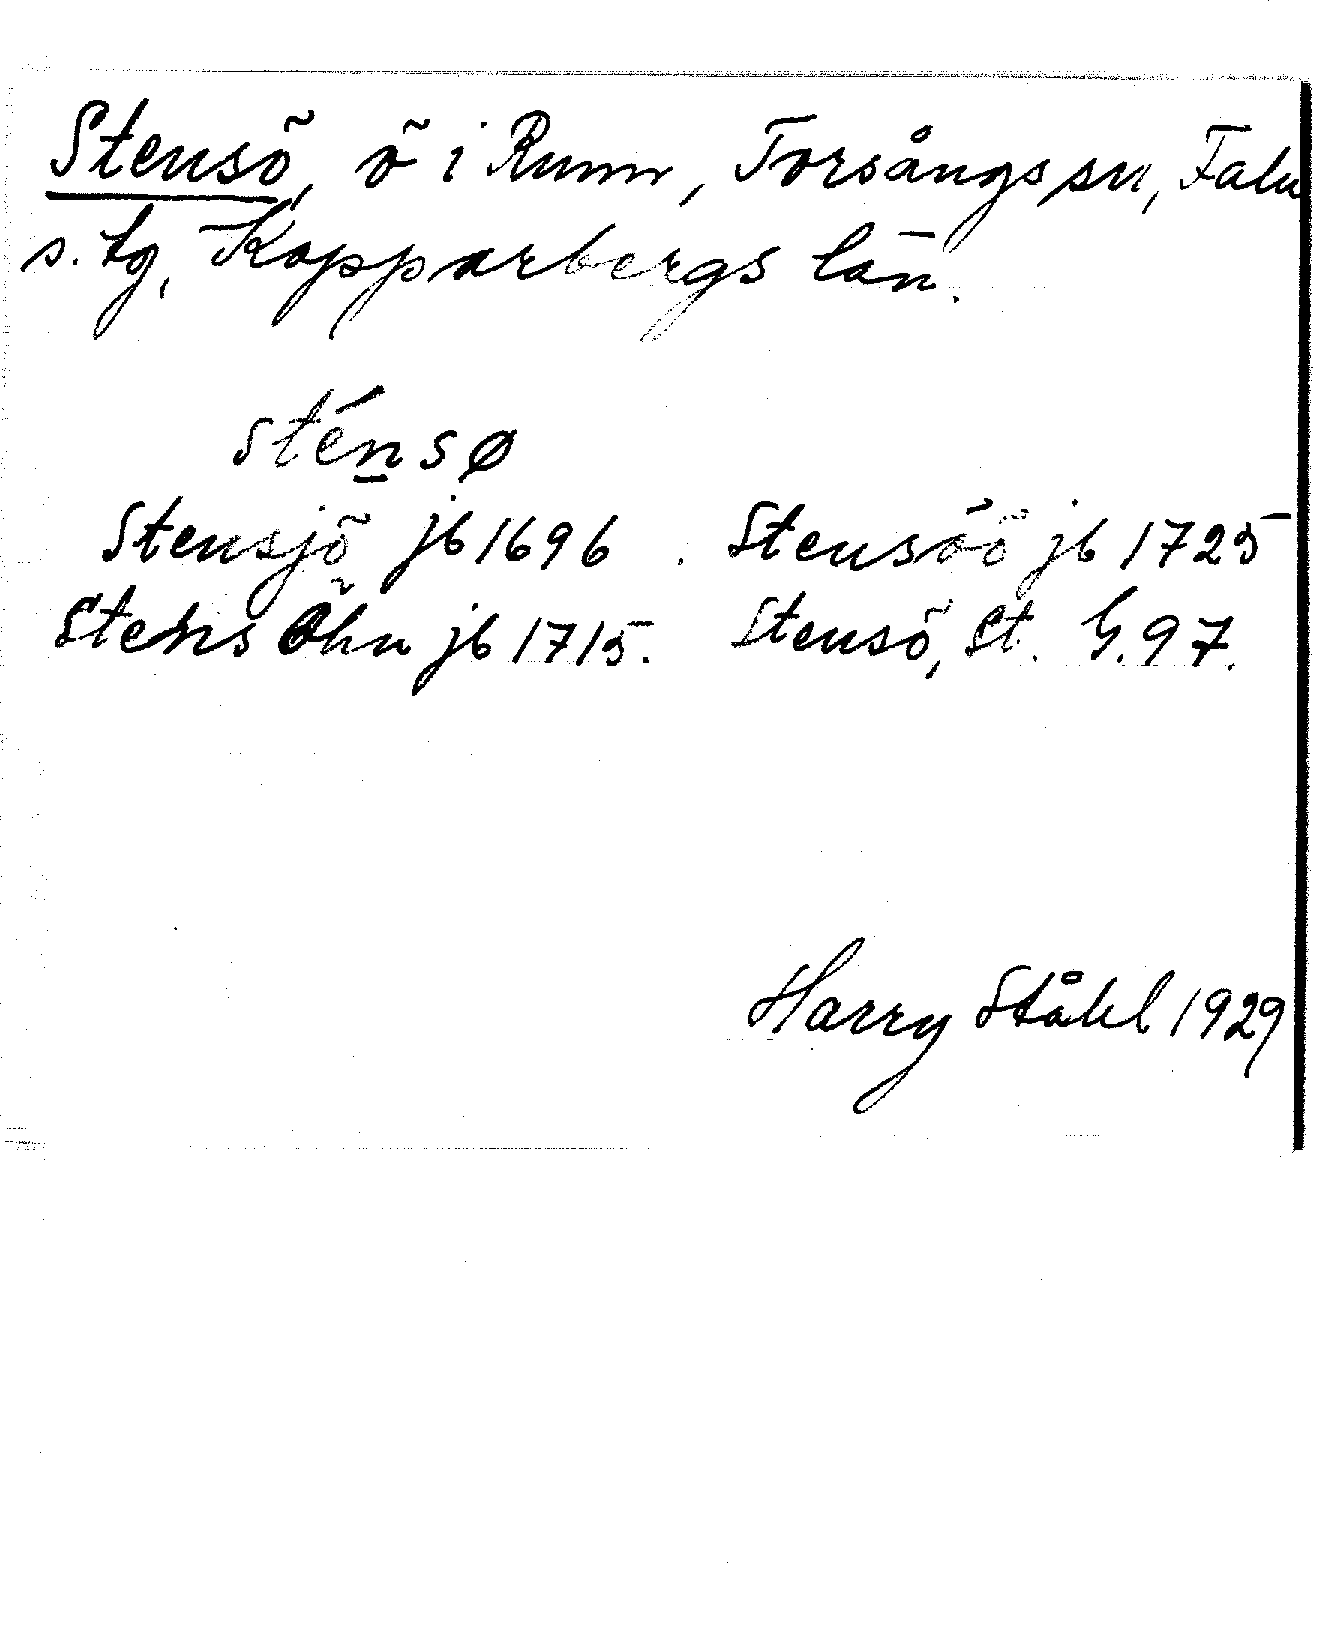 Stensö, ö i Runn, Torsångs sn, Falu
s. tg, Kopparbergs län.
sténsø
Stensjö jb 1696. Stensöö jb 1725
Stens Öhn jb 1715. Stensö, St. G. 97.
Harry Ståhl 1929